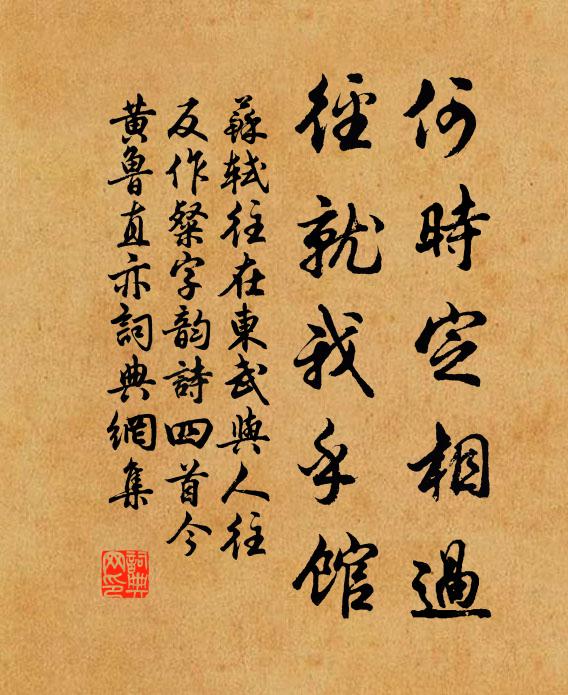 何時定相過
徑就我乎館
蘇軾往在東武與人往
反作粲字韵詩四首今
黃魯直亦詞典網集
詞典
网印